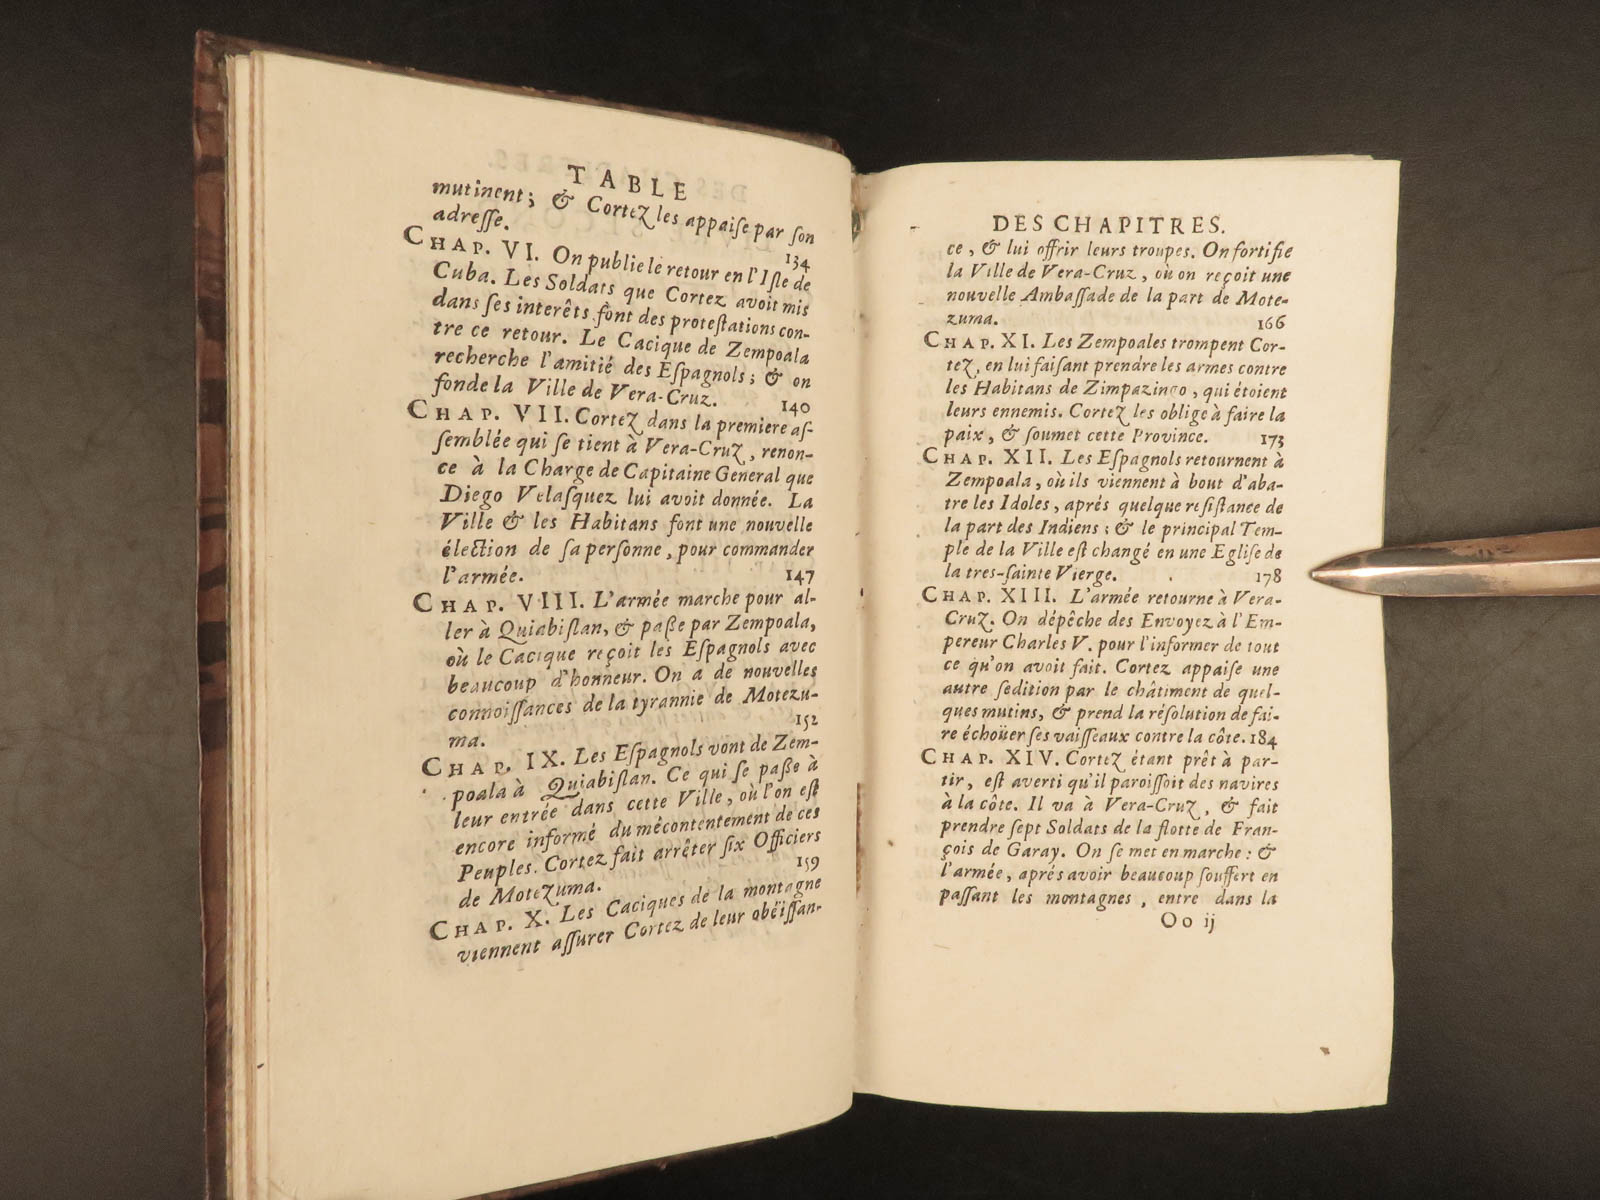 TABLE
mutinent; & Cortez les appaiſe par ſon
adreſſe. 134
CHAP. VI. On publie le retour en l'Iſle de
Cuba. Les Soldats que Cortez avoit mis
dans ſes interêts font des proteſtations con-
tre ce retour. Le Cacique de Zempoala
recherche l'amitié des Eſpagnols; & on
fonde la Ville de Vera-Cruz. 140
CHAP. VII. Cortez dans la premiere aſ-
ſemblée qui ſe tient à Vera-Cruz, renon-
ce à la Charge de Capitaine General que
Diego Velaſquez lui avoit donnée. La
Ville & les Habitans font une nouvelle
élection de ſa perſonne, pour commander
l'armée. 147
CHAP. VIII. L'armée marche pour al-
ler à Quiabiſlan, & paße par Zempoala,
où le Cacique reçoit les Eſpagnols avec
beaucoup d'honneur. On a de nouvelles
connoiſſances de la tyrannie de Motezu-
ma. 152
CHAP. IX. Les Eſpagnols vont de Zem-
poala à Quiabiſlan. Ce qui ſe paße à
leur entrée dans cette Ville, où l'on eſt
encore informé du mécontentement de ces
Peuples. Cortez fait arrêter ſix Officiers
de Motezuma. 159
CHAP. X. Les Caciques de la montagne
viennent aſſurer Cortez de leur obëiſſan-
DES CHAPITRES.
ce, & lui offrir leurs troupes. On fortifie
la Ville de Vera-Cruz, où on reçoit une
nouvelle Ambaſſade de la part de Mote-
zuma. 166
CHAP. XI. Les Zempoales trompent Cor-
tez, en lui faiſant prendre les armes contre
les Habitans de Zimpazingo, qui étoient
leurs ennemis. Cortez les oblige à faire la
paix, & ſoumet cette Province. 173
CHAP. XII. Les Eſpagnols retournent à
Zempoala, où ils viennent à bout d'aba-
tre les Idoles, aprés quelque reſiſtance de
la part des Indiens; & le principal Tem-
ple de la Ville eſt changé en une Egliſe de
la tres-ſainte Vierge. 178
CHAP. XIII. L'armée retourne à Vera-
Cruz. On dépêche des Envoyez à l'Em-
pereur Charles V. pour l'informer de tout
ce qu'on avoit fait. Cortez appaiſe une
autre ſedition par le châtiment de quel-
ques mutins, & prend la réſolution de fai-
re échoüer ſes vaiſſeaux contre la côte. 184
CHAP. XIV. Cortez étant prêt à par-
tir, eſt averti qu'il paroiſſoit des navires
à la côte. Il va à Vera-Cruz, & fait
prendre ſept Soldats de la flotte de Fran-
çois de Garay. On ſe met en marche: &
l'armée, aprés avoir beaucoup ſouffert en
paſſant les montagnes, entre dans la
Oo ij